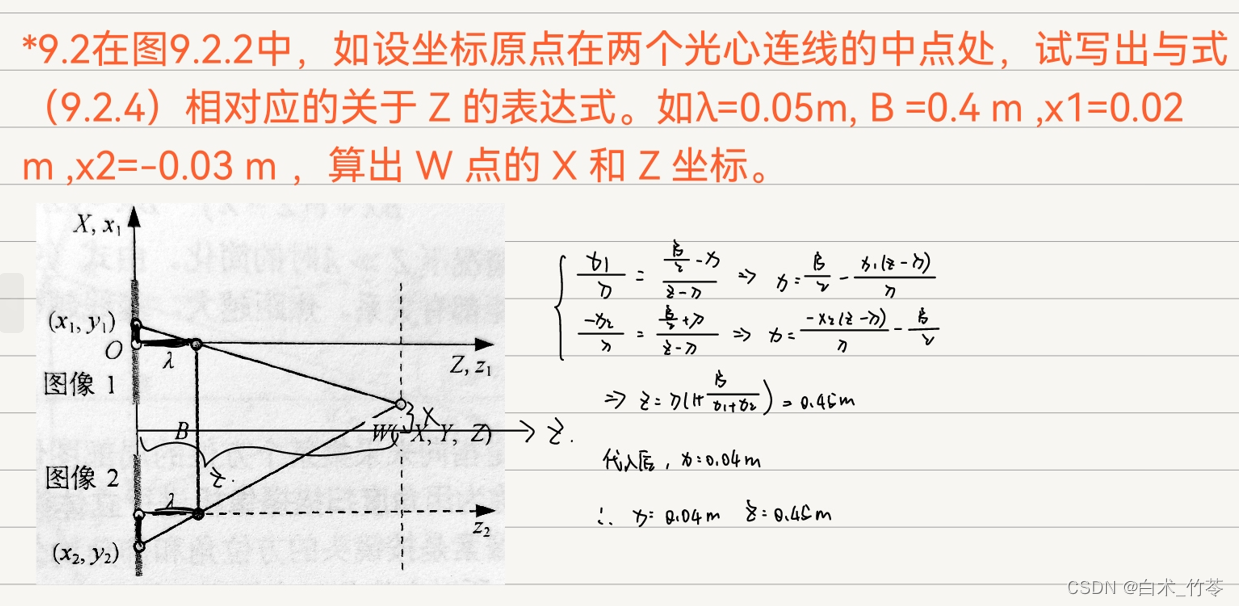 *9.2在图9.2.2中，如设坐标原点在两个光心连线的中点处，试写出与式
（9.2.4）相对应的关于 Z 的表达式。如λ=0.05m, B =0.4 m ,x1=0.02
m ,x2=-0.03 m ，算出 W 点的 X 和 Z 坐标。
X, x₁
(x₁, y₁)
O
λ
Z, z₁
图像 1
X
B
W(-X, Y, Z)
Z.
图像 2
Z.
λ
z₂
(x₂, y₂)
x₁/λ = (B/2 - x)/(z-λ) => x = B/2 - x₁(z-λ)/λ
-x₂/λ = (B/2 + x)/(z-λ) => x = -x₂(z-λ)/λ - B/2
=> z = λ(1+ B/(x₁+x₂)) = 0.45m
代入后，x=0.04m
∴ x= 0.04m z=0.45m
CSDN @白术_竹苓